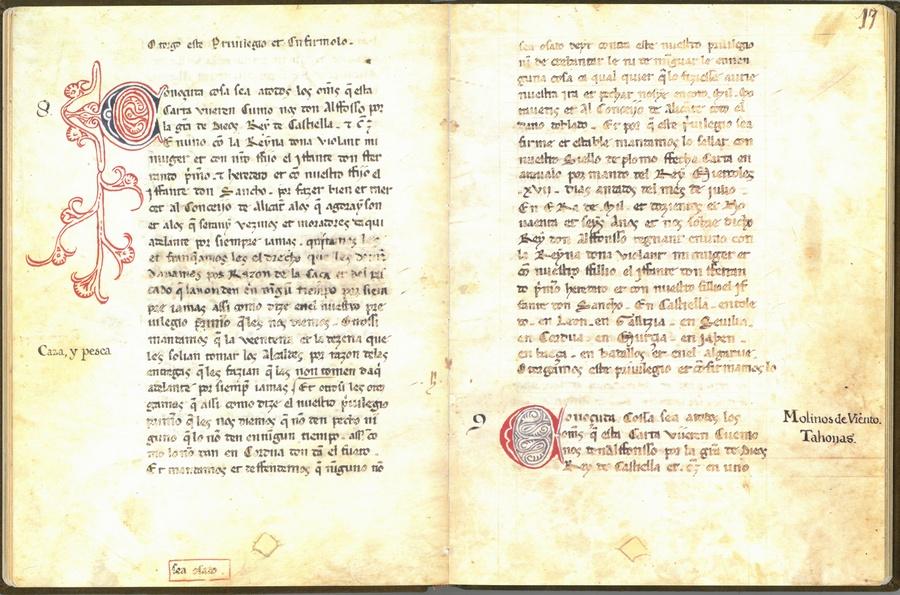 Otorgo este Priuilegio et Confirmolo.
8
Conoçuda cosa sea atodos los oms q̃ esta
Carta vieren Cuemo nos don Alffosso por
la grã de Dios Rey de Castiella
En uno cõ la Reyna dona violant mi
muger et con nr̃o fijo el Iffante don ffer
rando pmo. τ heredero et cõ nuestro ffijo el
Iffante don Sancho. por fazer bien et mer
çet al Conceio de Alicãt alos q̃ agora y son
et alos q̃ seran y vezinos et moradores daqui
adelante por siempre iamas. quitamos les
et franq̃amos les el derecho que les
Danamos por Razon de la Caça et del pes
cado q̃ lo non den en ningũ tiempo por siem
pre iamas assi como dize enel nuestro pre
uilegio q̃ les nos diemos. Otrossi
mandamos q̃ la veentena et la dezena que
les solian tomar los Alcaldes por razon delas
entregas q̃ les fazian q̃ las non tomen daq̃
adelante por siemp̃ iamas. Et otrossi les oto
gamos q̃ assi como dize el nuestro priuilegio
q̃ les nos diemos q̃ nõ den pecho nĩ
guno q̃ lo nõ den enningun tiempo. assi co
mo lo nõ dan en Cordua
Et mandamos et deffendemos q̃ ninguno nõ
Caza, y pesca
sea osado.
19
sea osado de yr contra este nuestro priuilegio
nĩ de crebantar le nĩ de mĩguar le en nin
guna cosa ca qual quier q̃ lo fiziesse aurie
nuestra yra et pechar nos ye en coto. Mil. Mo
rauetis et Al Conceijo de Alicãte todo el
dano doblado. Et por q̃ este priuilegio sea
firme et estable mandamos lo sellar con
nuestro Siello de plomo ffecha Carta en
por mando del Rey Miercoles
XVII. dias andados del mes de julio.
En E Ra de Mil. et dozientos et No
naenta et seys Anos et nos sobre dicho
Rey don Alffonsso regnant enuno con
la Reyna dona violant mi muger et
cõ nuestro ffillo el Iffante don fferran
do pmo heredero et con nuestro ffillo el If
fante don Sancho. En Castiella. en tole
do. en Leon. en Gallizia. en Seuilla.
en Cordua. en Murcia. en jahen.
en baeça. en badalloz et enel algarue.
Otorgamos este priuilegio et cõfirmamos lo
9
Molinos de Viento.
Tahonas.
Conoçuda Cosa sea atodos los
oms q̃ esta Carta vieren Cuemo
nos don Alffonsso por la grã de Dios
Rey de Castiella et. c̃. en uno